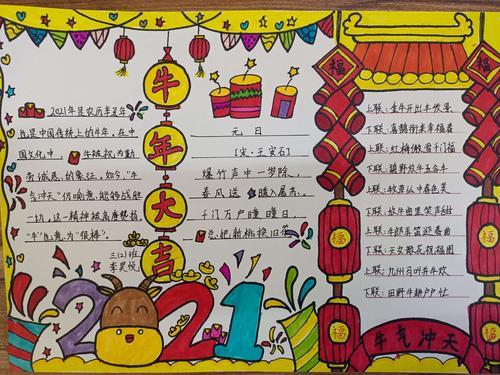 2021年是农历辛丑年
也是中国传统上的牛年，在中
国文化中，牛被视为勤
劳诚恳的象征。如今，“牛
气冲天”仍响意能够战胜
一切。这一精神被高度赞扬
“牛”也意为“很棒”。
三(2)班
李昊悦
牛
年
大
吉
2021
元日
[宋·王安石]
爆竹声中一岁除，
春风送暖入屠苏。
千门万户曈曈日，
总把新桃换旧符
福
福
福
福
福
福
上联：金牛开出丰收景
下联：喜鹊衔来幸福春
上联：红梅傲雪千门福
下联：碧野放牛五谷丰
上联：牧草从中春色美
下联：放牛曲里笑声甜
上联：牛郎弄笛迎春曲
下联：天女散花祝福图
上联：九州日叫牛年欢
下联：田野牛耕户户忙
牛气冲天